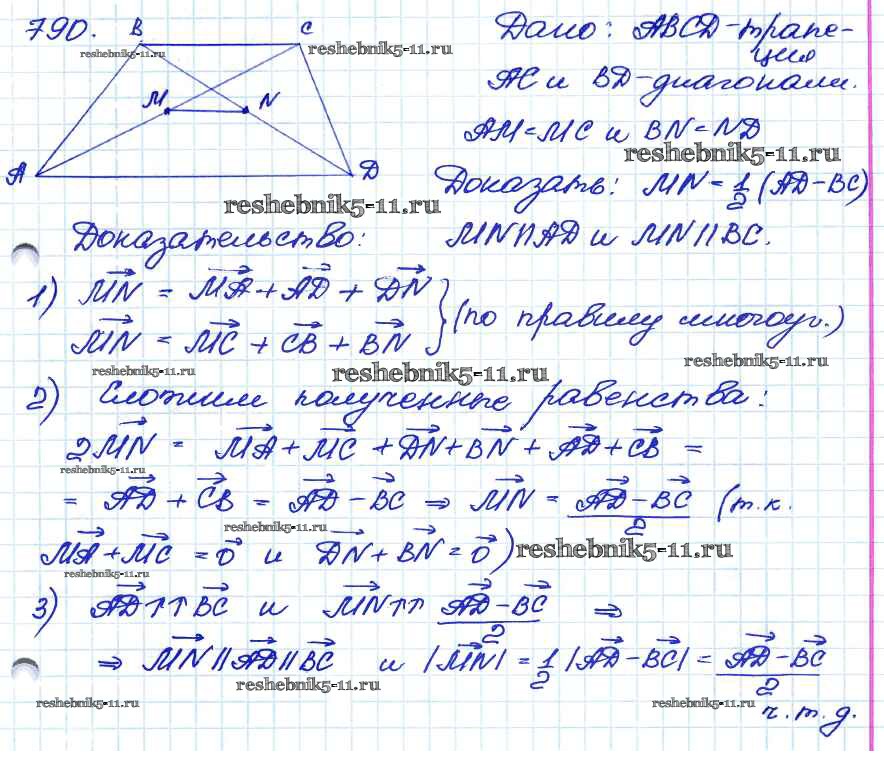 790.
B C
reshebnik5-11.ru reshebnik5-11.ru
M N
A D
reshebnik5-11.ru
Дано: ABCD-трапе-
ция
AC и BD-диагонали.
AM=MC и BN=ND
reshebnik5-11.ru
Доказать: MN = 1/2 (AD-BC)
Доказательство: MN||AD и MN||BC.
1) →MN = →MA + →AD + →DN
→MN = →MC + →CB + →BN } (по правилу многоуг.)
reshebnik5-11.ru reshebnik5-11.ru reshebnik5-11.ru
2) Сложим полученные равенства:
2→MN = →MA + →MC + →DN + →BN + →AD + →CB =
reshebnik5-11.ru
= →AD + →CB = →AD - →BC ⇒ →MN = (→AD - →BC)/2 (т.к.
reshebnik5-11.ru
→MA + →MC = →0 и →DN + →BN = →0) reshebnik5-11.ru
reshebnik5-11.ru
3) →AD↑↑→BC и →MN↑↑ (→AD - →BC)/2 ⇒
⇒ →MN || →AD || →BC и |→MN| = 1/2 |→AD - →BC| = (→AD - →BC)/2
reshebnik5-11.ru
reshebnik5-11.ru reshebnik5-11.ru
ч.т.д.